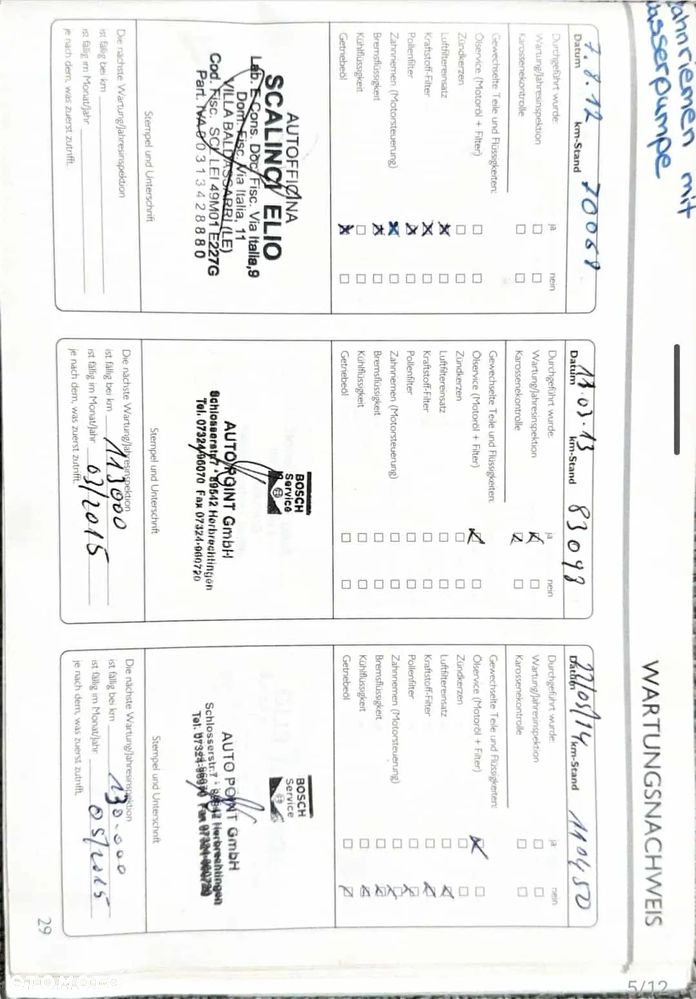 WARTUNGSNACHWEIS
ahnriemen mit
asserpumpe
Datum 7.8.12 km-Stand 70068
Durchgeführt wurde: ja nein
Wartung/Jahresinspektion
Karosseriekontrolle
Gewechselte Teile und Flüssigkeiten:
Ölservice (Motoröl + Filter)
Zündkerzen
Luftfiltereinsatz
Kraftstoff-Filter
Pollenfilter
Zahnriemen (Motorsteuerung)
Bremsflüssigkeit
Kühlflüssigkeit
Getriebeöl
AUTOFFICINA
SCALINCI ELIO
Lab. E Cons. Doc. Fisc. Via Italia,9
Dom. Fisc. Via Italia, 11
VILLA BALDASSARRI (LE)
Cod. Fisc. SCL LEI 49M01 E227G
Part. IVA 00313428880
Stempel und Unterschrift
Die nächste Wartung/Jahresinspektion
ist fällig bei km
ist fällig im Monat/Jahr
je nach dem, was zuerst zutrifft.
Datum 13.03.13 km-Stand 83098
Durchgeführt wurde: ja nein
Wartung/Jahresinspektion
Karosseriekontrolle
Gewechselte Teile und Flüssigkeiten:
Ölservice (Motoröl + Filter)
Zündkerzen
Luftfiltereinsatz
Kraftstoff-Filter
Pollenfilter
Zahnriemen (Motorsteuerung)
Bremsflüssigkeit
Kühlflüssigkeit
Getriebeöl
BOSCH
Service
AUTO POINT GmbH
Schlosserstr. 7 · 89542 Herbrechtingen
Tel. 07324-96070 Fax 07324-960720
Stempel und Unterschrift
Die nächste Wartung/Jahresinspektion
ist fällig bei km 113000
ist fällig im Monat/Jahr 03/2015
je nach dem, was zuerst zutrifft.
Datum 22/05/14 km-Stand 110450
Durchgeführt wurde: ja nein
Wartung/Jahresinspektion
Karosseriekontrolle
Gewechselte Teile und Flüssigkeiten:
Ölservice (Motoröl + Filter)
Zündkerzen
Luftfiltereinsatz
Kraftstoff-Filter
Pollenfilter
Zahnriemen (Motorsteuerung)
Bremsflüssigkeit
Kühlflüssigkeit
Getriebeöl
BOSCH
Service
AUTO POINT GmbH
Schlosserstr. 7 · 89542 Herbrechtingen
Tel. 07324-96070 Fax 07324-960720
Stempel und Unterschrift
Die nächste Wartung/Jahresinspektion
ist fällig bei km 130.000
ist fällig im Monat/Jahr 05/2015
je nach dem, was zuerst zutrifft.
29
5/12